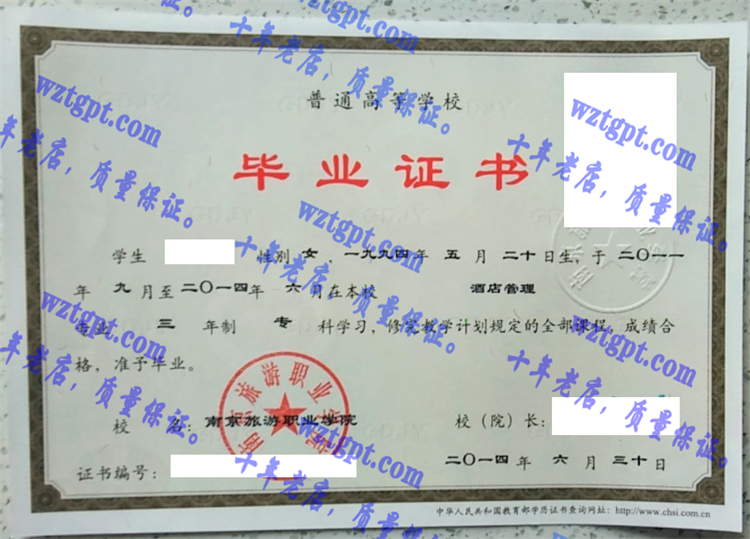 普通高等学校
毕业证书
学生 性别 女，一九九四年 五 月 二十日生，于 二〇一一
年 九 月至 二〇一四年 六 月在本校 酒店管理
专业 三 年制 专 科学习，修完教学计划规定的全部课程，成绩合
格，准予毕业。
校 名：南京旅游职业学院 校（院）长：
证书编号： 二〇一四年 六 月 三十日
中华人民共和国教育部学历证书查询网址：http://www.chsi.com.cn
南京旅游职业学院
wztgpt.com
十年老店，质量保证。
wztgpt.com
十年老店，质量保证。
wztgpt.com
十年老店，质量保证。
wztgpt.com
十年老店，质量保证。
wztgpt.com
十年老店，质量保证。
wztgpt.com
十年老店，质量保证。
wztgpt.com
十年老店，质量保证。